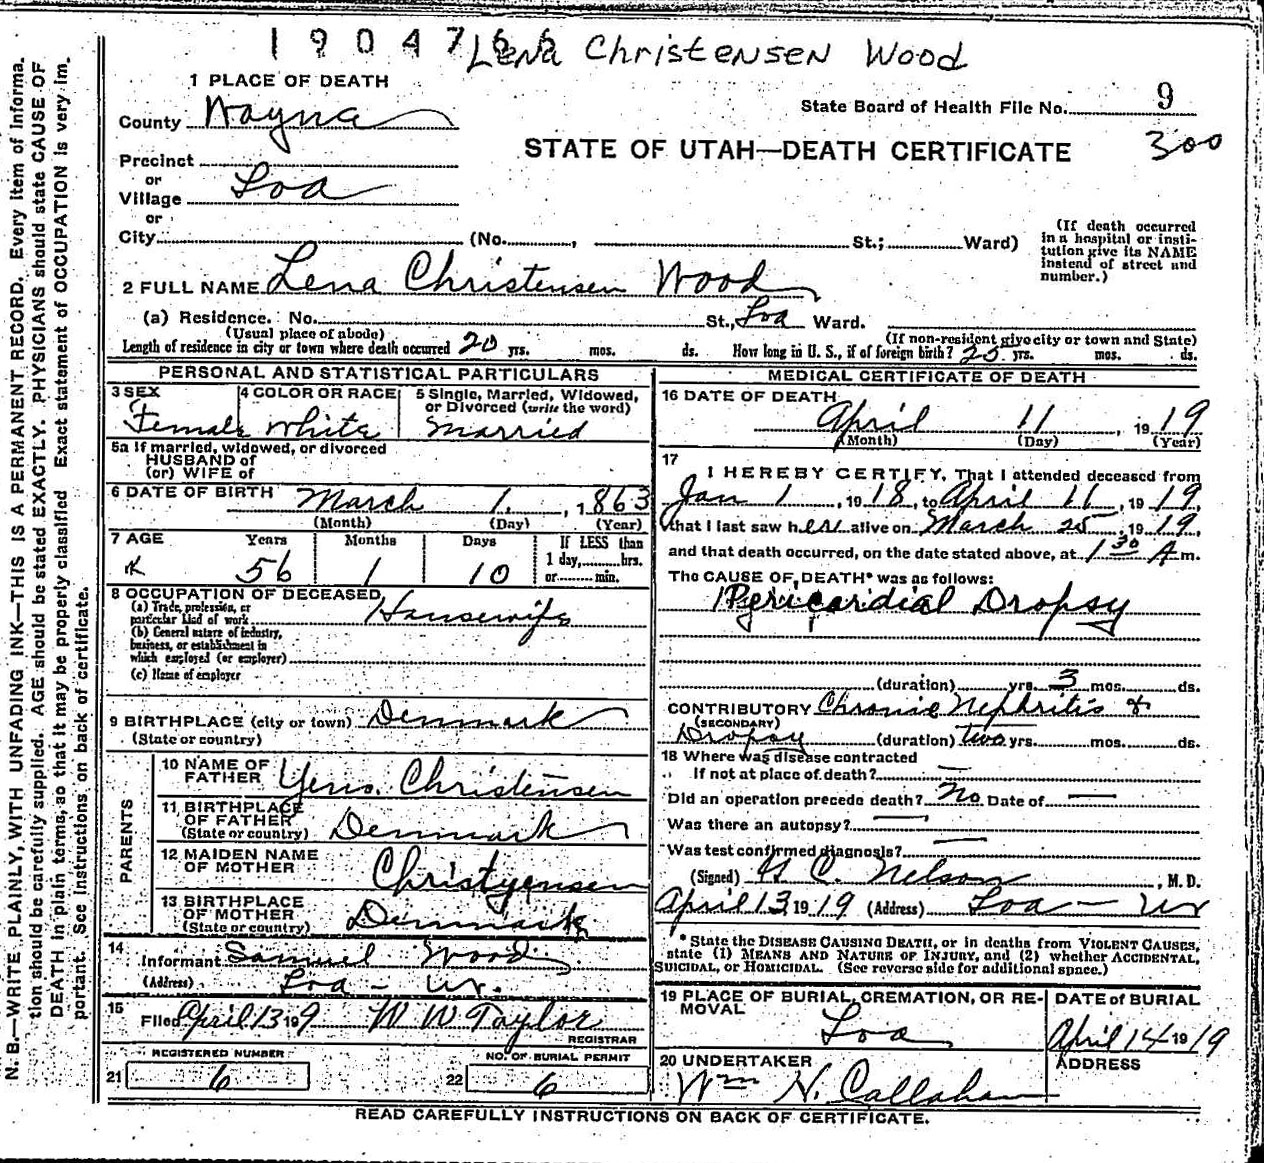 1904766 Lena Christensen Wood
1 PLACE OF DEATH
State Board of Health File No. 9
County Wayna
STATE OF UTAH—DEATH CERTIFICATE 300
Precinct
or
Village Loa
or
City (No. , St.; Ward)
(If death occurred
in a hospital or insti-
tution give its NAME
instead of street and
number.)
2 FULL NAME Lena Christensen Wood
(a) Residence. No. St., Loa Ward.
(Usual place of abode) (If non-resident give city or town and State)
Length of residence in city or town where death occurred 20 yrs. mos. ds. How long in U. S., if of foreign birth? 25 yrs. mos. ds.
PERSONAL AND STATISTICAL PARTICULARS
3 SEX 4 COLOR OR RACE 5 Single, Married, Widowed,
or Divorced (write the word)
Female White Married
5a If married, widowed, or divorced
HUSBAND of
(or) WIFE of
6 DATE OF BIRTH March 1, 1863
(Month) (Day) (Year)
7 AGE Years Months Days If LESS than
1 day, hrs.
56 1 10 or min.
8 OCCUPATION OF DECEASED
(a) Trade, profession, or
particular kind of work Housewife
(b) General nature of industry,
business, or establishment in
which employed (or employer)
(c) Name of employer
9 BIRTHPLACE (city or town) Denmark
(State or country)
PARENTS
10 NAME OF
FATHER Yens. Christensen
11 BIRTHPLACE
OF FATHER
(State or country) Denmark
12 MAIDEN NAME
OF MOTHER Christyensen
13 BIRTHPLACE
OF MOTHER
(State or country) Denmark
14
Informant Samuel Wood
(Address) Loa - Ut.
15
Filed April 13 1919 M W Taylor
REGISTRAR
REGISTERED NUMBER NO. OF BURIAL PERMIT
21 6 22 6
MEDICAL CERTIFICATE OF DEATH
16 DATE OF DEATH
April 11, 1919
(Month) (Day) (Year)
17
I HEREBY CERTIFY, That I attended deceased from
Jan 1, 1918, to April 11, 1919,
that I last saw her alive on March 25, 1919,
and that death occurred, on the date stated above, at 1 30 A m.
The CAUSE OF DEATH* was as follows:
Pericardial Dropsy
(duration) yrs. 3 mos. ds.
CONTRIBUTORY Chronic Nephritis &
(SECONDARY)
Dropsy (duration) two yrs. mos. ds.
18 Where was disease contracted
if not at place of death? —
Did an operation precede death? No Date of —
Was there an autopsy? —
Was test confirmed diagnosis? —
(Signed) C. Nelson, M. D.
April 13 1919 (Address) Loa - Ut
* State the DISEASE CAUSING DEATH, or in deaths from VIOLENT CAUSES,
state (1) MEANS AND NATURE OF INJURY, and (2) whether ACCIDENTAL,
SUICIDAL, or HOMICIDAL. (See reverse side for additional space.)
19 PLACE OF BURIAL, CREMATION, OR RE-
MOVAL
Loa
DATE of BURIAL
April 14 1919
20 UNDERTAKER ADDRESS
Wm N. Callahan
READ CAREFULLY INSTRUCTIONS ON BACK OF CERTIFICATE.
N. B.—WRITE PLAINLY, WITH UNFADING INK—THIS IS A PERMANENT RECORD. Every item of informa-
tion should be carefully supplied. AGE should be stated EXACTLY. PHYSICIANS should state CAUSE OF
DEATH in plain terms, so that it may be properly classified. Exact statement of OCCUPATION is very im-
portant. See instructions on back of certificate.